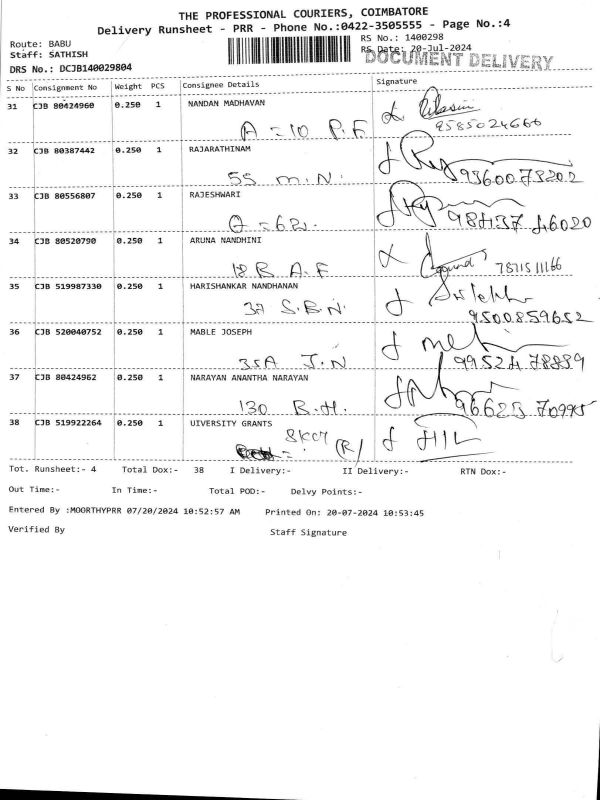 THE PROFESSIONAL COURIERS, COIMBATORE
Delivery Runsheet - PRR - Phone No.:0422-3505555 - Page No.:4
Route: BABU
RS No.: 1400298
Staff: SATHISH
RS Date: 20-Jul-2024
DOCUMENT DELIVERY
DRS No.: DCJB140029804
S No Consignment No Weight PCS Consignee Details Signature
31 CJB 80424960 0.250 1 NANDAN MADHAVAN
A = 10 P.F 9585024666
32 CJB 80387442 0.250 1 RAJARATHINAM
55 M.N. 9360073202
33 CJB 80556807 0.250 1 RAJESHWARI
98437 46020
34 CJB 80520790 0.250 1 ARUNA NANDHINI
18 B.A.F 7871511166
35 CJB 519987330 0.250 1 HARISHANKAR NANDHANAN
37 S.B.N. 9500859652
36 CJB 520040752 0.250 1 MABLE JOSEPH
35A J.N 99524 78889
37 CJB 80424962 0.250 1 NARAYAN ANANTHA NARAYAN
130 B.H. 96625 70995
38 CJB 519922264 0.250 1 UIVERSITY GRANTS
(R)
Tot. Runsheet:- 4 Total Dox:- 38 I Delivery:- II Delivery:- RTN Dox:-
Out Time:- In Time:- Total POD:- Delvy Points:-
Entered By :MOORTHYPRR 07/20/2024 10:52:57 AM Printed On: 20-07-2024 10:53:45
Verified By Staff Signature